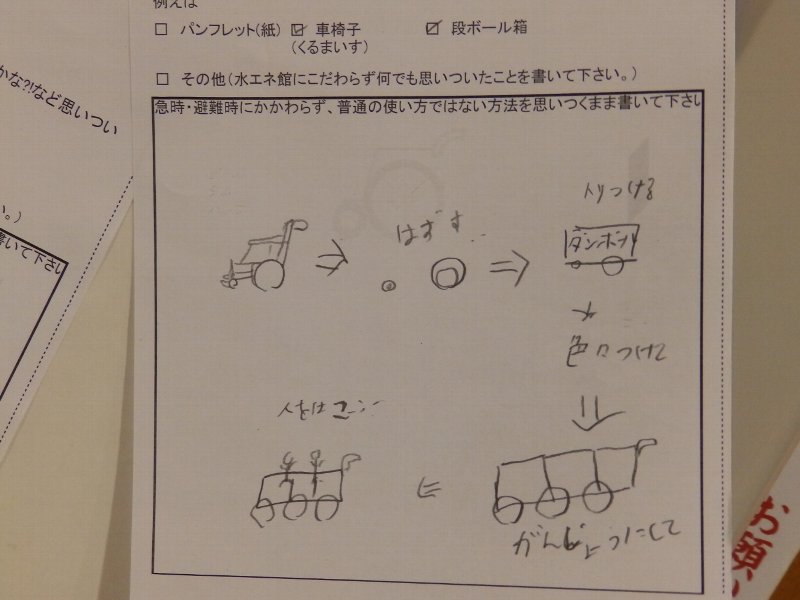 例えば
□ パンフレット(紙) ☑ 車椅子 ☑ 段ボール箱
(くるまいす)
□ その他(水エネ館にこだわらず何でも思いついたことを書いて下さい。)
急時・避難時にかかわらず、普通の使い方ではない方法を思いつくまま書いて下さい
とりつける
はずす…
ダンボール
色々つけて
人をはコブ…
がんじょうにして
かな?!など思いつい
い。)
書いて下さい
お願い